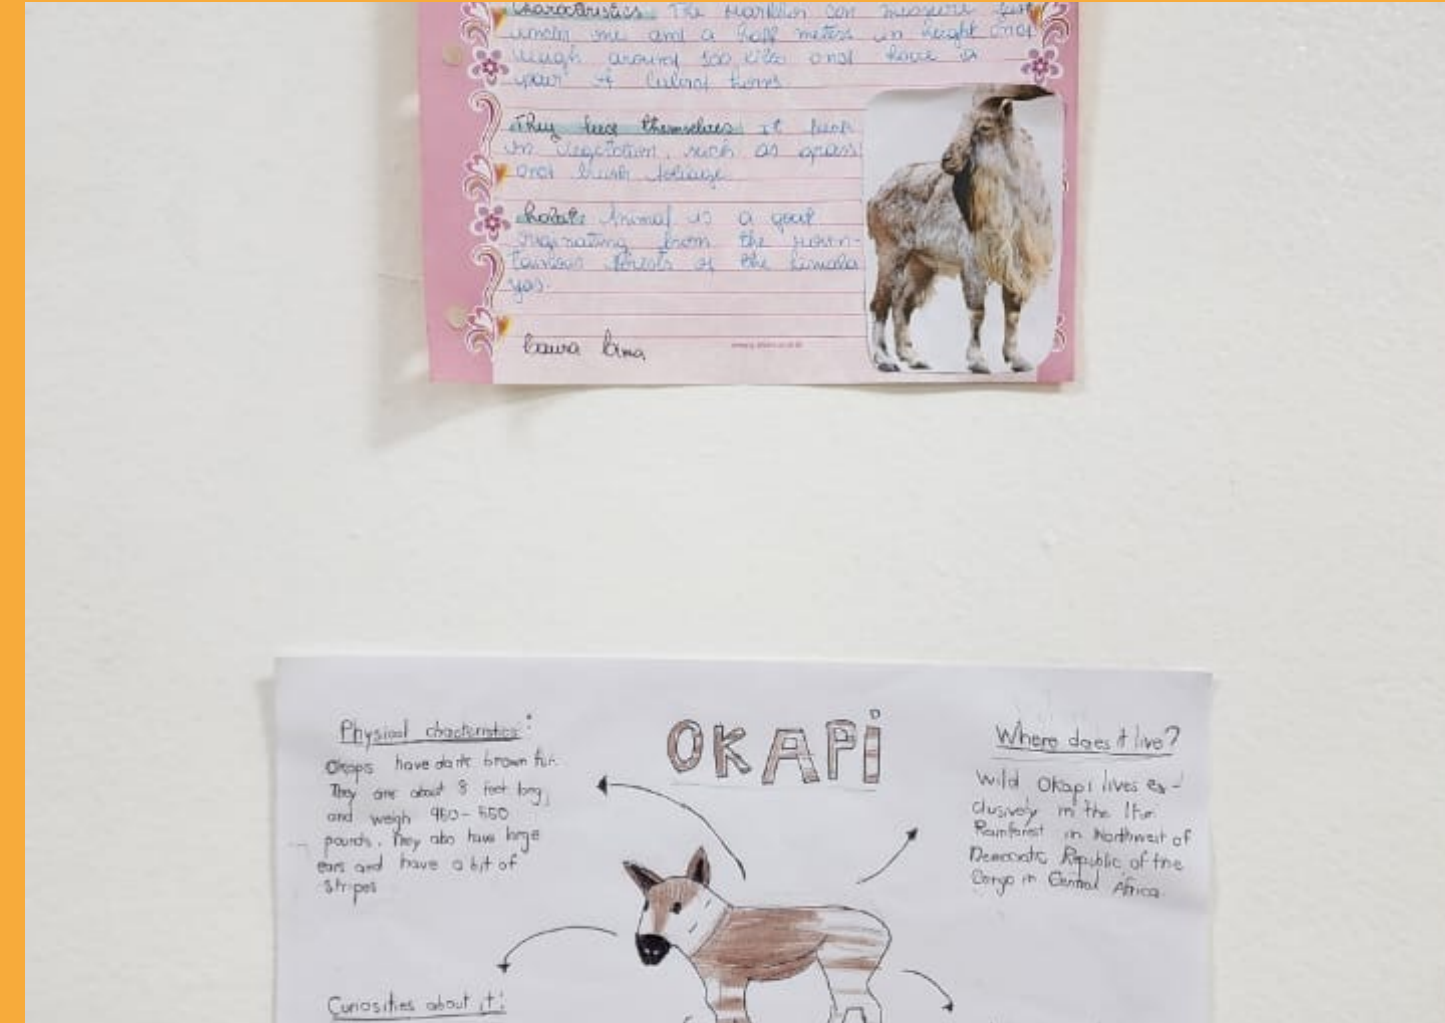 Characteristics: The Markhor can measure just
under one and a half meters in height and
weigh around 100 kilos and have a
pair of curved horns.
They feed themselves It feeds
on vegetation, such as grass
and bush foliage.
Animal is a goat
originating from the moun-
tainous forests of the himala
yas.
Laura Lima
OKAPi
Physical chacteristics:
Okapis have dark brown fur.
They are about 8 feet long,
and weigh 450-550
pounds. They also have large
ears and have a bit of
stripes
Where does it live?
Wild Okapi lives ex-
clusively in the Ituri
Rainforest in Northwest of
Democratic Republic of the
Congo in Central Africa.
Curiosities about it: